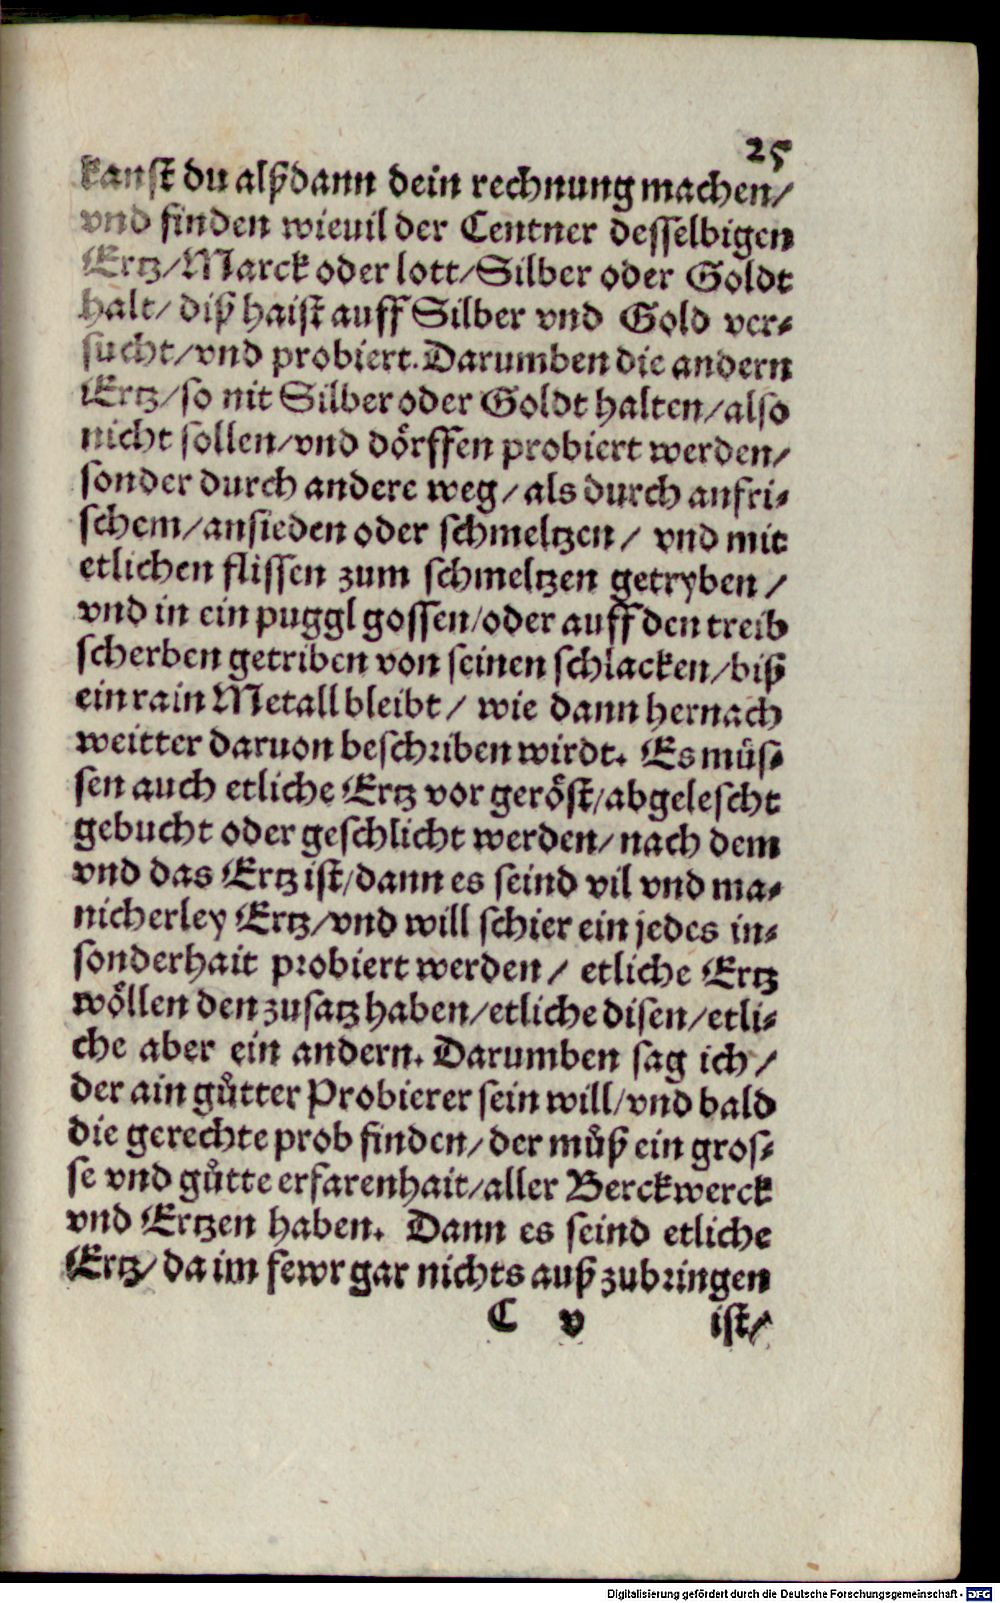 25
kanst du alßdann dein rechnung machen/
vnd finden wieuil der Centner desselbigen
Ertz/Marck oder lott/Silber oder Goldt
halt/ diß haist auff Silber vnd Gold ver-
sucht/vnd probiert. Darumben die andern
Ertz/so nit Silber oder Goldt halten/also
nicht sollen/vnd dörffen probiert werden/
sonder durch andere weg/als durch anfri-
schem/ansieden oder schmeltzen/ vnd mit
etlichen flissen zum schmeltzen getryben/
vnd in ein puggl gossen/oder auff den treib
scherben getriben von seinen schlacken/biß
ein rain Metall bleibt/ wie dann hernach
weitter daruon beschriben wirdt. Es müs-
sen auch etliche Ertz vor geröst/abgelescht
gebucht oder geschlicht werden/nach dem
vnd das Ertz ist/dann es seind vil vnd ma-
nicherley Ertz/vnd will schier ein jedes in-
sonderhait probiert werden/ etliche Ertz
wöllen den zusatz haben/etliche disen/etli-
che aber ein andern. Darumben sag ich/
der ain gůtter Probierer sein will/vnd bald
die gerechte prob finden/der můß ein gros-
se vnd gůtte erfarenhait/aller Berckwerck
vnd Ertzen haben. Dann es seind etliche
Ertz/da im fewr gar nichts auß zubringen
C v ist/
Digitalisierung gefördert durch die Deutsche Forschungsgemeinschaft - DFG